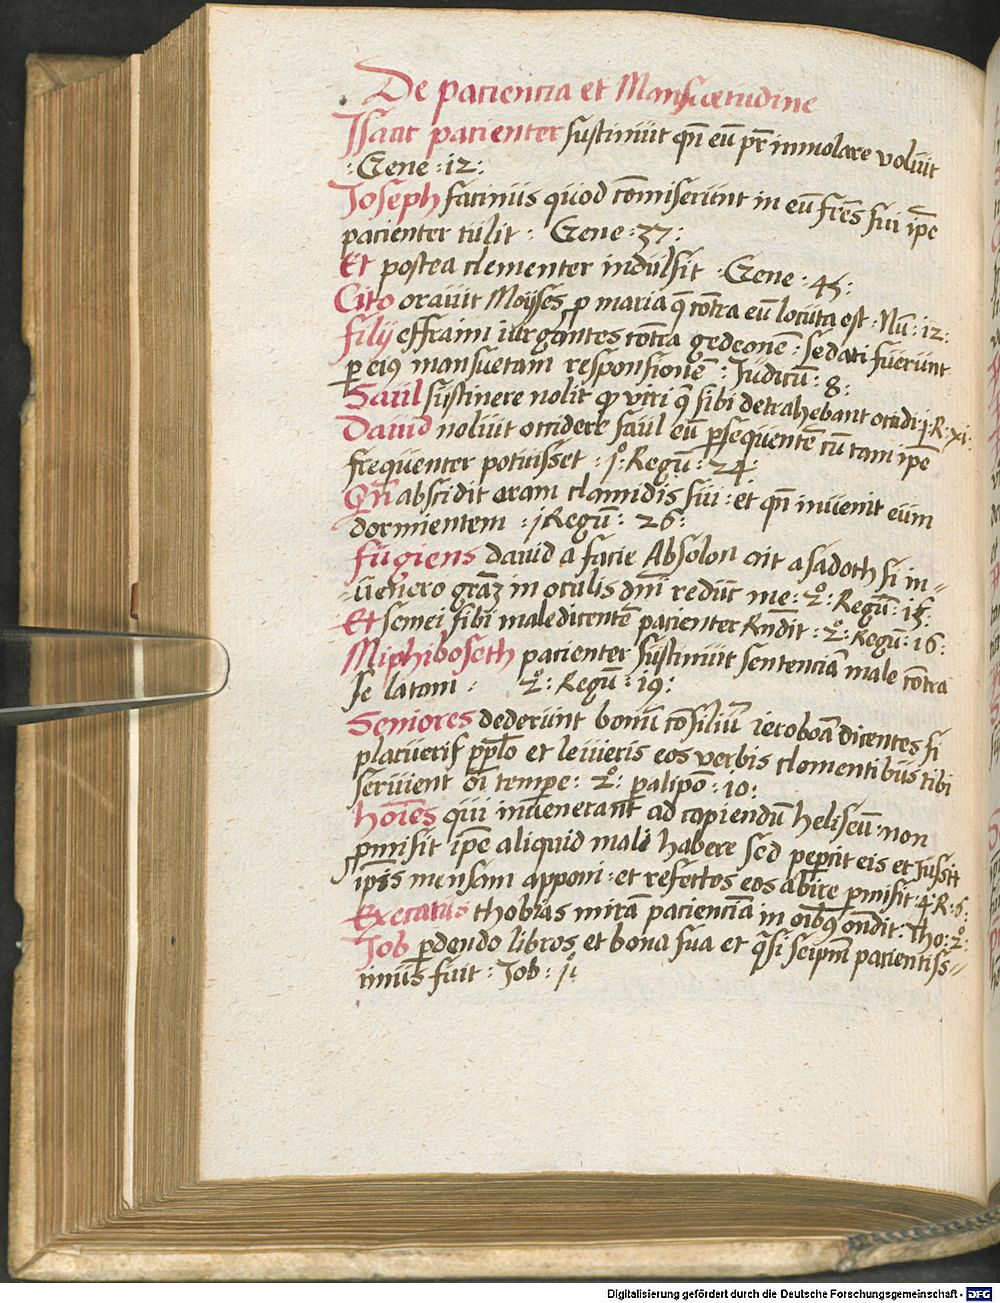 De paciencia et Mansuetudine
Isaac pacienter sustinuit qn̄ eū pr̄ immolare voluit
: Gene : 12 :
Joseph facinus quod cōmiserunt in eū fr̄es sui ip̄e
pacienter tulit : Gene : 37 :
Et postea clementer indulsit : Gene : 45 :
Cito orauit Moyses ꝓ maria q̄ cōtra eū locuta est : Nū : 12 :
filij effraim iurgantes cōtra gedeonē : sedati fuerunt
ꝑ eius mansuetam responsionē : Judicū : 8 :
Saul sustinere nolit qꝫ viri q̄ sibi detrahebant occidi : j : R : xi :
Dauid noluit occidere saul eū ꝑsequentē cū tam ip̄e
frequenter potuisset : jº : Regū : 24 :
Qn̄ abscidit oram clamidis sui : et qn̄ inuenit eum
dormientem : j Regū : 26 :
fugiens dauid a facie Absolon ait a sadoth si in-
uenero graꝫ in oculis dn̄i reduīt me : 2º : Regū : 15 :
Et semei sibi maledicentē pacienter Rn̄dit : 2º : Regū : 16 :
Miphiboseth pacienter sustinuit sentenciā male cōtra
se latam : 2º : Regū : 19 :
Seniores dederunt bonū cōsiliū ieroboā dicentes si
placueris pp̄lo et leuieris eos verbis clementibus tibi
seruient oī tempe : 2º : palipō : 10 :
hoīes qui inuenerant ad capiendū heliseū : non
ꝑmisit ip̄e aliquid mali habere sed peꝑcit eis et Jussit
ip̄sis mensam apponi : et refectos eos abire ꝑmisit : 4º : R : 6 :
Excecatus thobias mirā pacienciā in oībꝫ on̄dit : Tho : 2º :
Job ꝑdendo libros et bona sua et q̄si seipm̄ pacientiss-
imus fuit : Job : jº
Digitalisierung gefördert durch die Deutsche Forschungsgemeinschaft - DFG